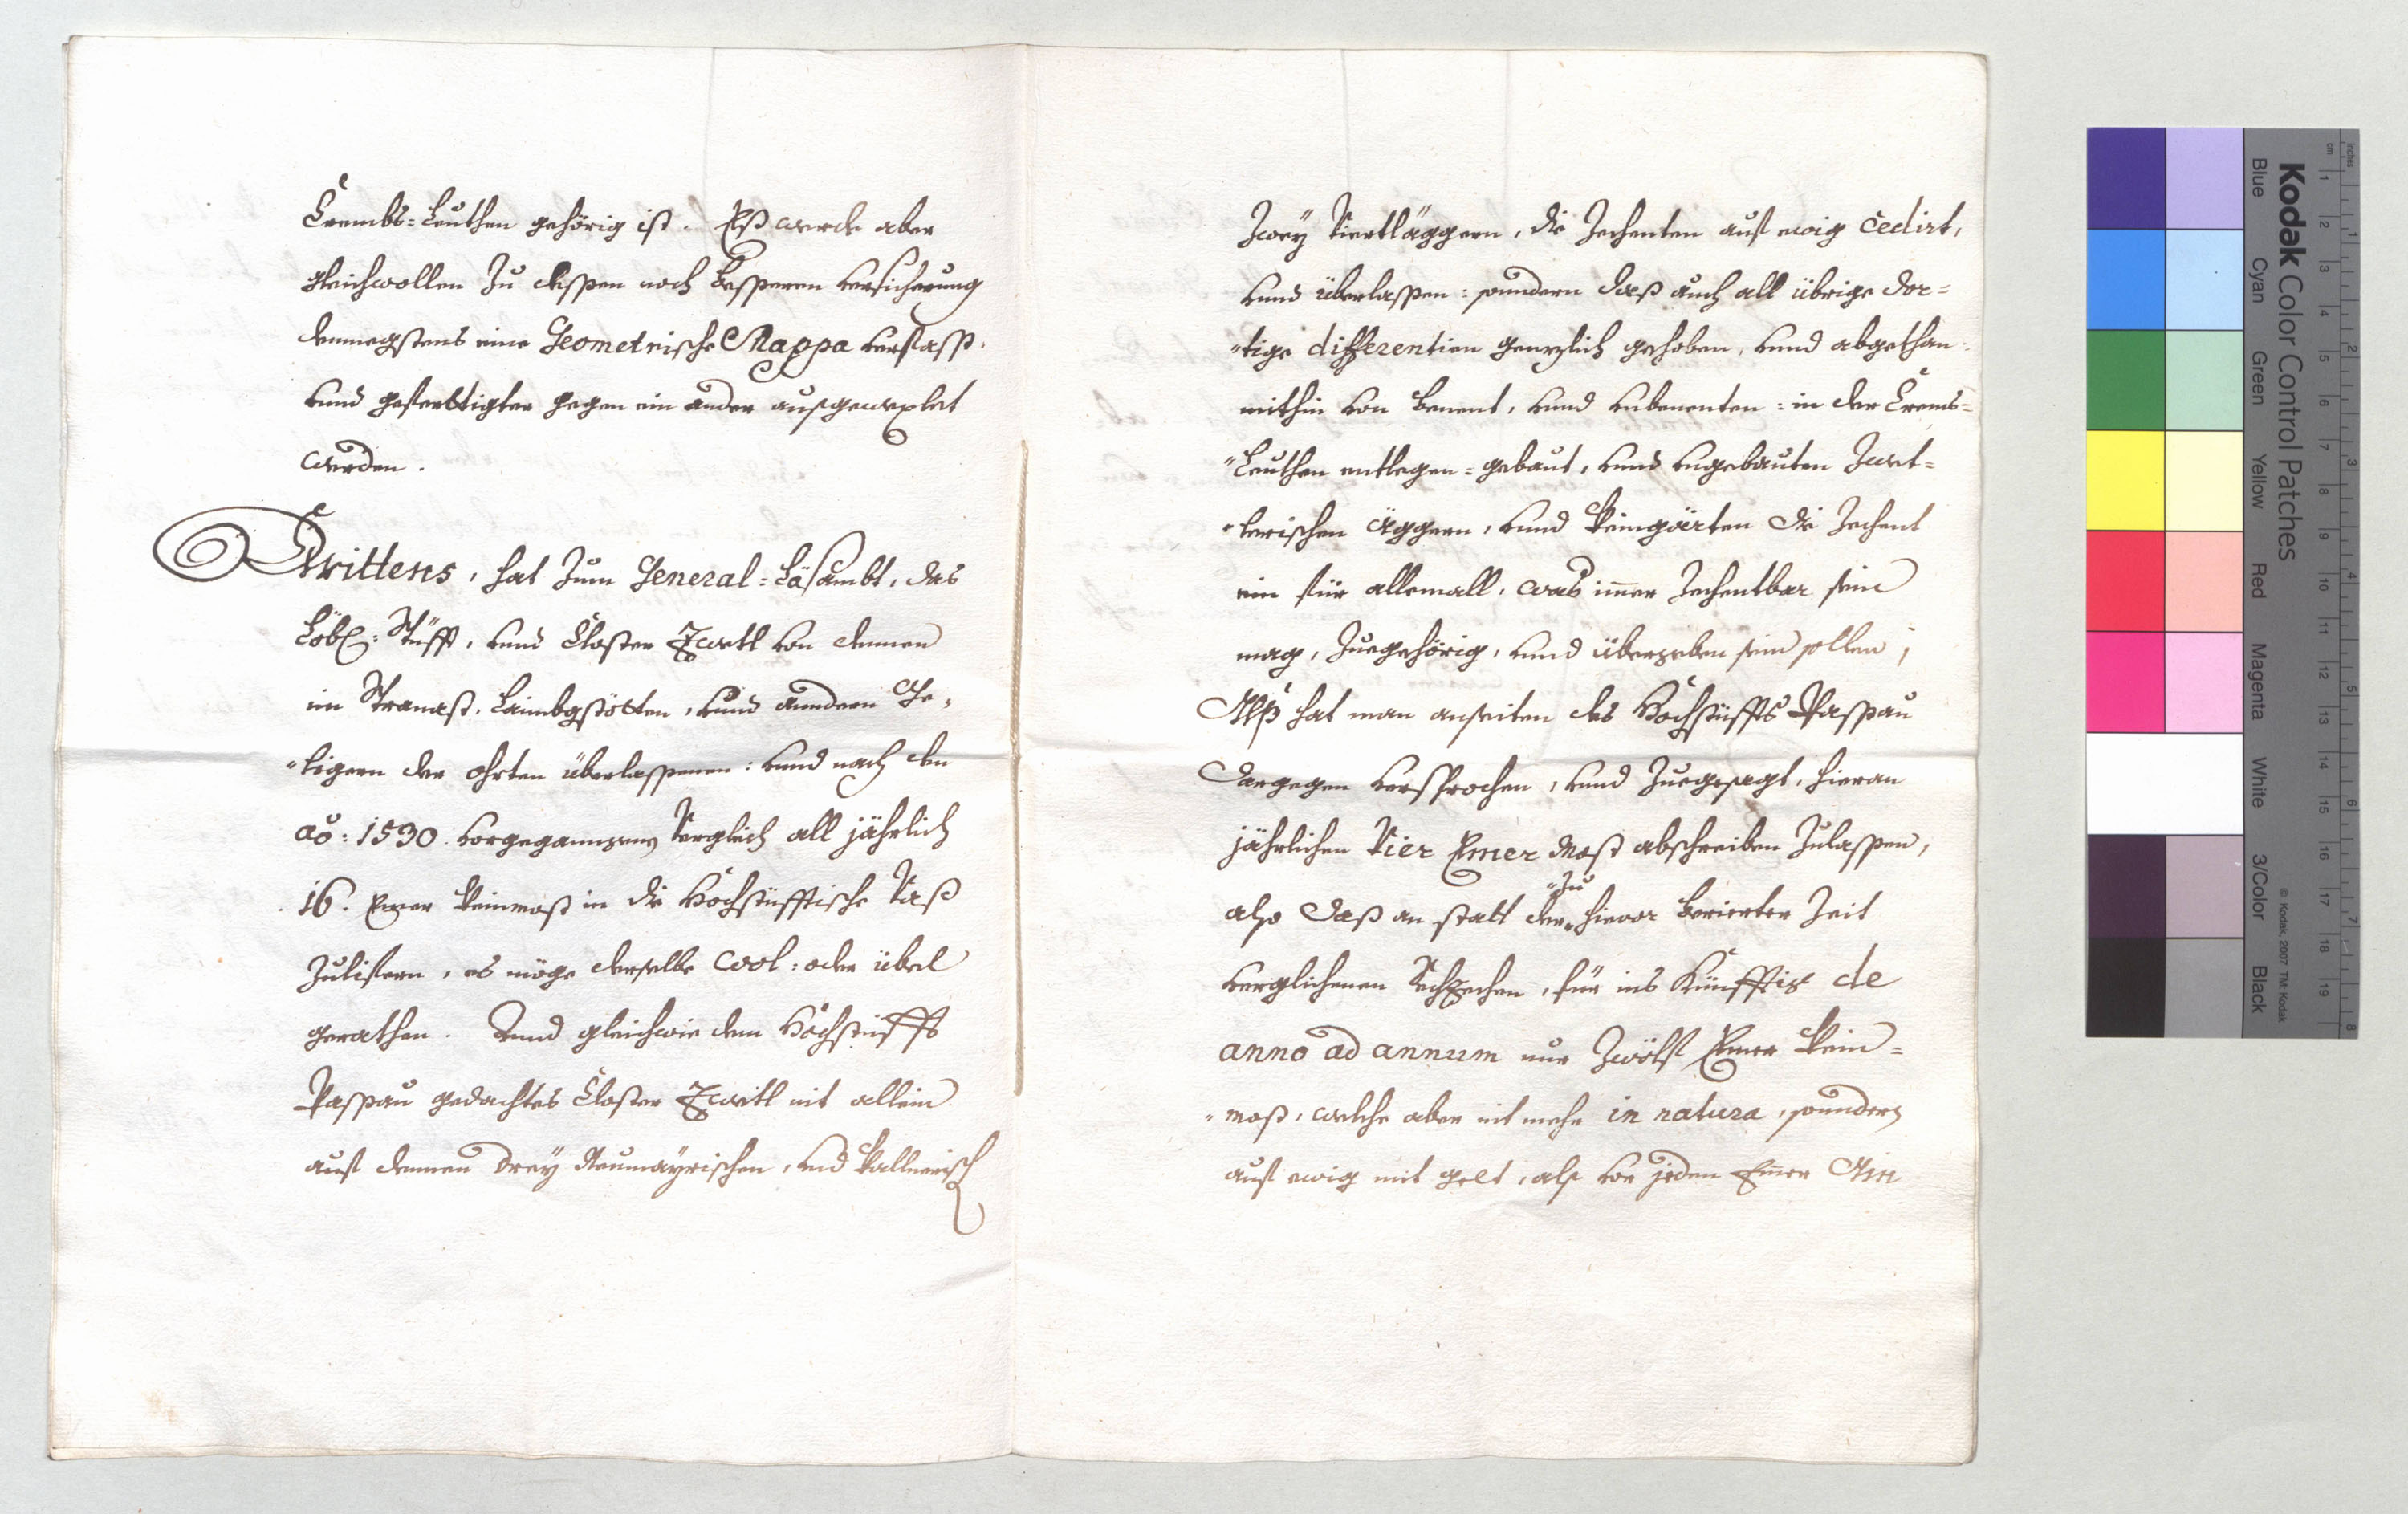 Crembs=Leuthen gehörig ist. Eß werde aber
gleichwollen zu dessen noch besseren versicherung
demnegstens eine Geometrische Mappa verfasst,
vnd gefertigter gegen ein ander ausgewexlet
werden.
Drittens, hat zum General=Läsambt, das
Löbl: Stüfft, vnd Closter Zwetl von denen
im Stranaß, Laimbgstötten, vnd anndern
ligern der ohrten überlassenen: vnd nach den
aõ: 1530. vorgegangenen Verglich all jährlich
16. Emer Weinmost in die Hochstüfftische Vaß
zulifern, es möge derselbe wol: oder übel
gerathen. Vnd gleichwie dem Hochstüffts
Passau gedachtes Closter Zwetl nit allein
auf denen drey Neumayrischen, vnd Wallnerisch
Zwey Viertläggern, die Zechenten auf ewig cedirt,
vnd überlassen: sonndern daß auch all übrige dor=
tige differentien genzlich gehoben, vnd abgethan
mithin von benent, vnd vnbenenten: in der Crems=
Leuthen entlegen=gebaut, vnd vngebauten Zwet=
lerischen Äggern, vnd Weingärten die Zechent
ein für allemall, was imer Zechentbar sein
mag, zuegehörig, vnd übergeben sein sollen;
Alß hat man anseiten des Hochstüffts Passau
dargegen versprochen, vnd zuegesagt, hieran
jährlichen Vier Emer Most abschreiben zulassen,
also daß an statt der zu hievor berierter Zeit
verglichenen Sechzechen, für ins Künfftig de
anno ad annum nur Zwölf Emer Wein=
most, welche aber nit mehr in natura, sonndern
auf ewig mit gelt, alß vor jeden Emer Ain